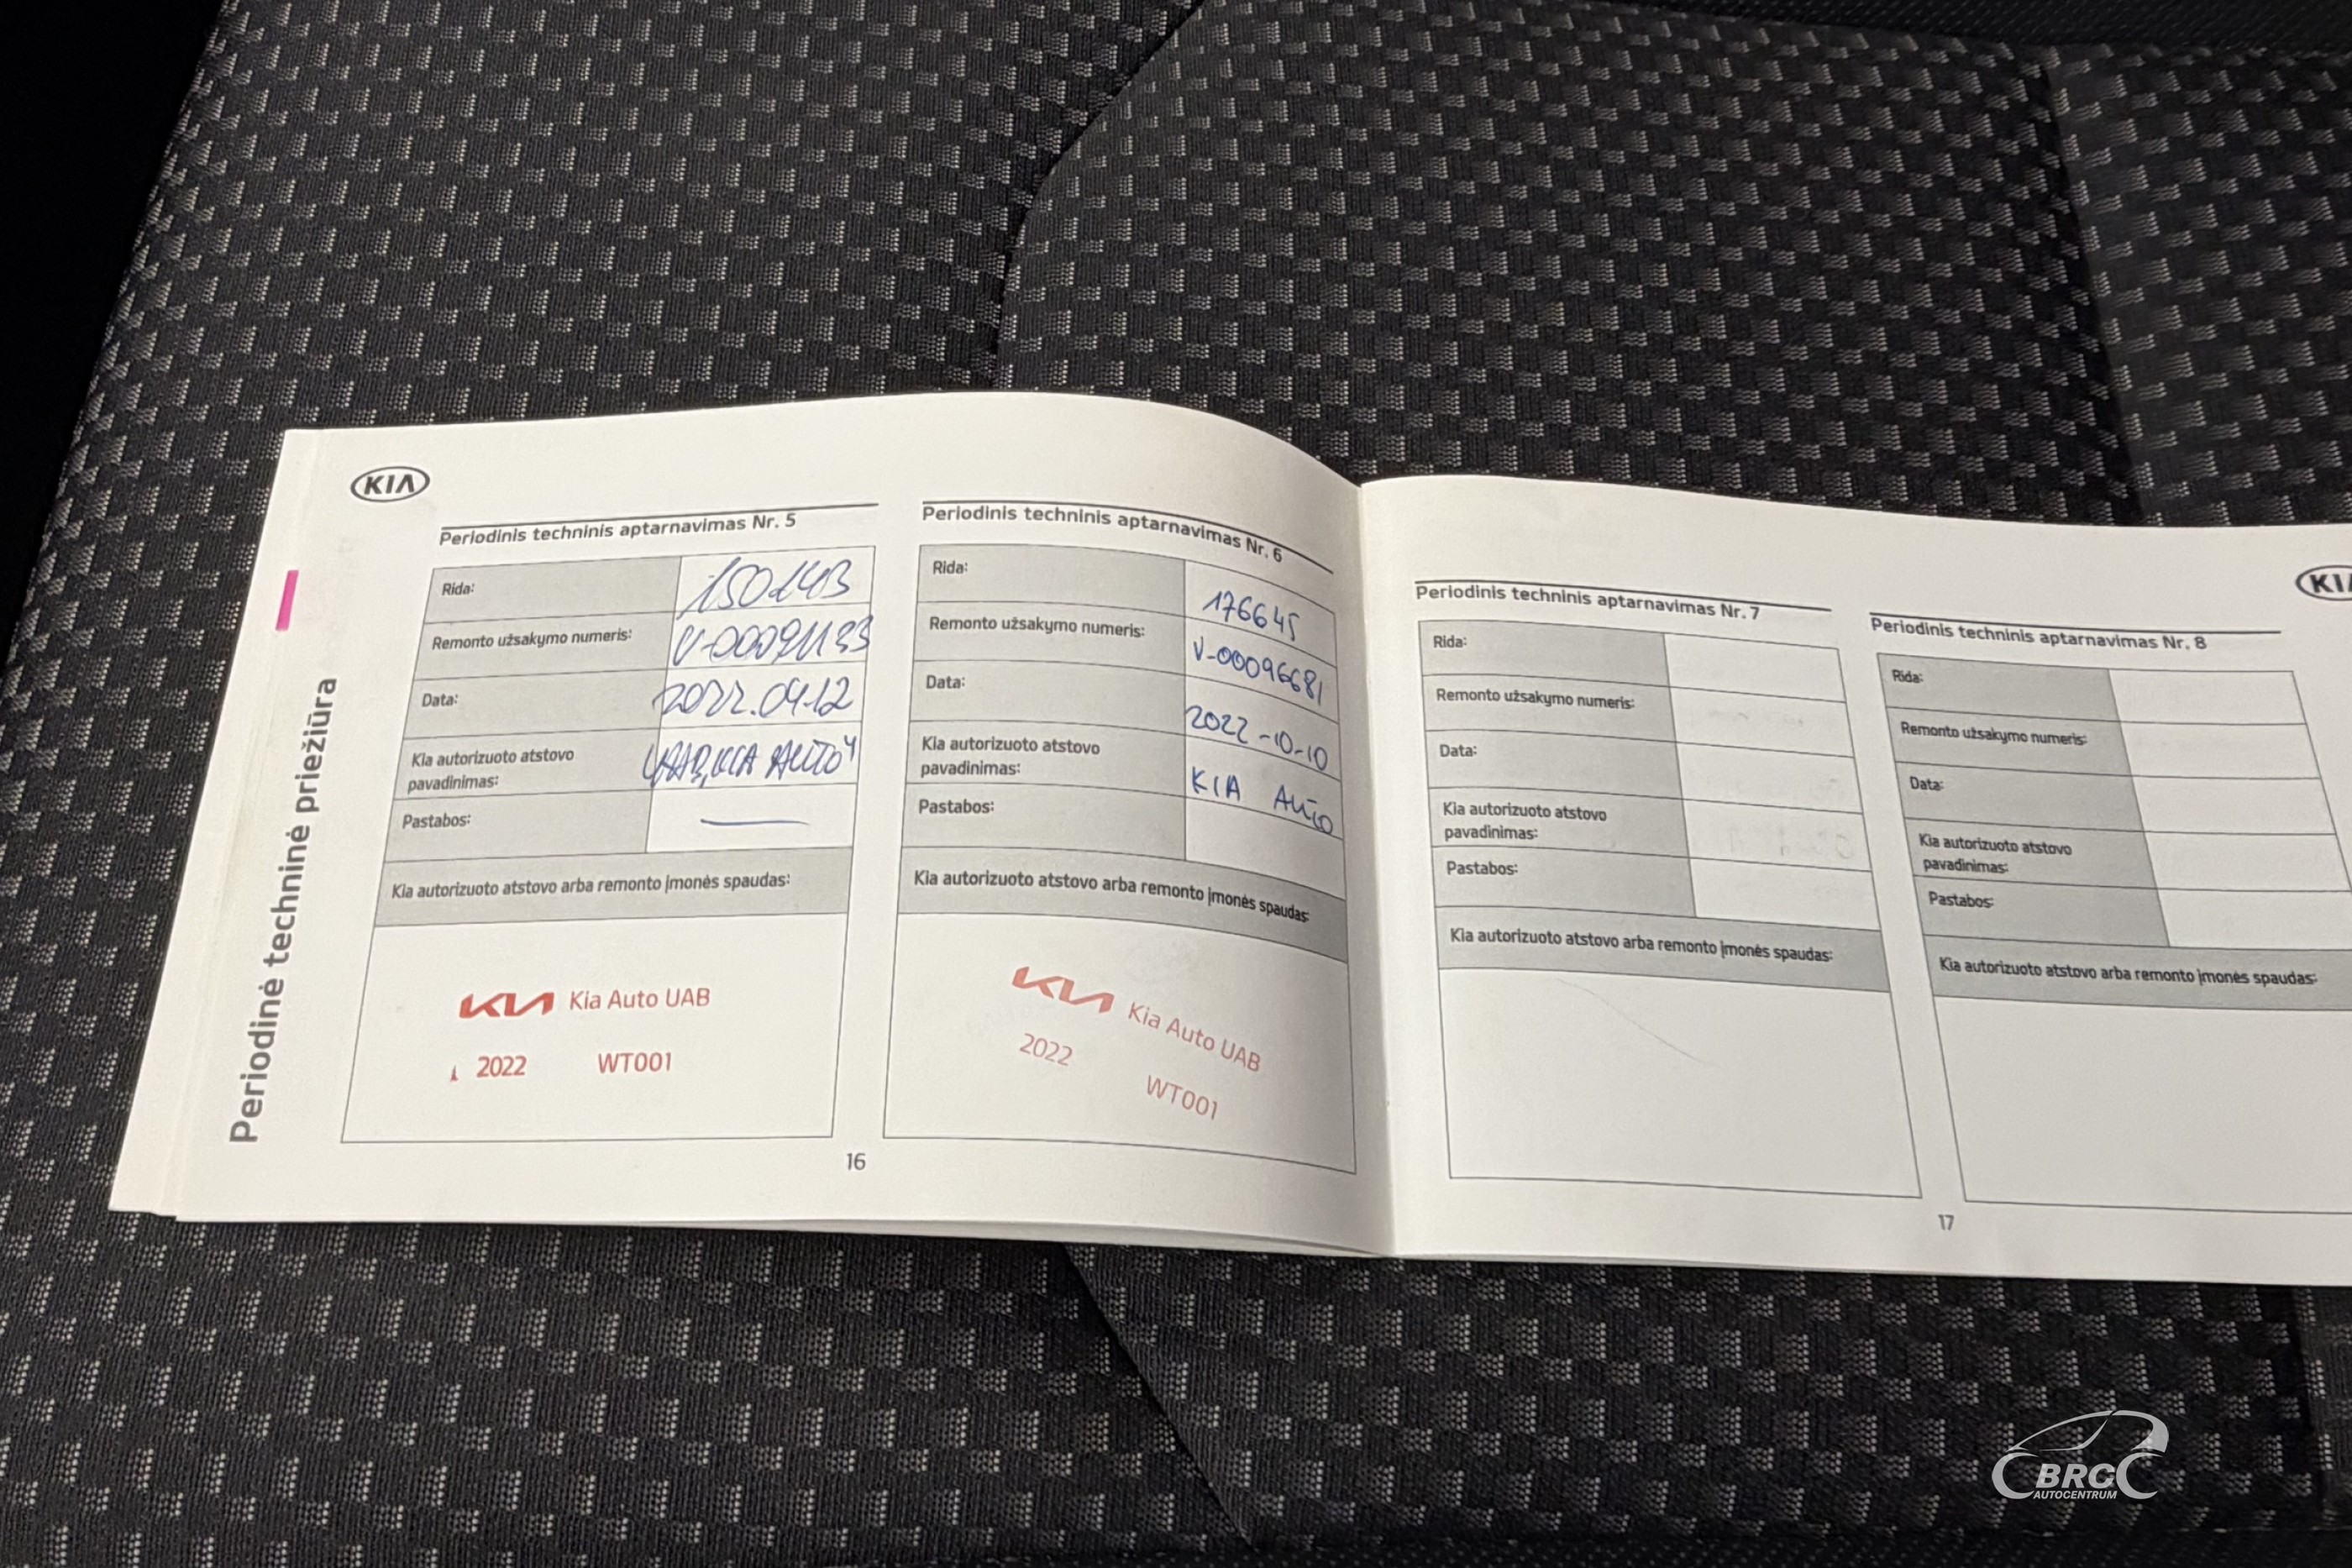 KIA
Periodinė techninė priežiūra
Periodinis techninis aptarnavimas Nr. 5
Rida: 150143
Remonto užsakymo numeris: V-00091133
Data: 2022.04.12
Kia autorizuoto atstovo
pavadinimas: KIA AUTO"
Pastabos: —
Kia autorizuoto atstovo arba remonto įmonės spaudas:
KIA Kia Auto UAB
2022 WT001
Periodinis techninis aptarnavimas Nr. 6
Rida: 176645
Remonto užsakymo numeris: V-00096681
Data: 2022-10-10
Kia autorizuoto atstovo
pavadinimas: KIA AUTO
Pastabos:
Kia autorizuoto atstovo arba remonto įmonės spaudas:
KIA Kia Auto UAB
2022 WT001
16
Periodinis techninis aptarnavimas Nr. 7
Rida:
Remonto užsakymo numeris:
Data:
Kia autorizuoto atstovo
pavadinimas:
Pastabos:
Kia autorizuoto atstovo arba remonto įmonės spaudas:
KIA
Periodinis techninis aptarnavimas Nr. 8
Rida:
Remonto užsakymo numeris:
Data:
Kia autorizuoto atstovo
pavadinimas:
Pastabos:
Kia autorizuoto atstovo arba remonto įmonės spaudas:
17
BRC
AUTOCENTRUM